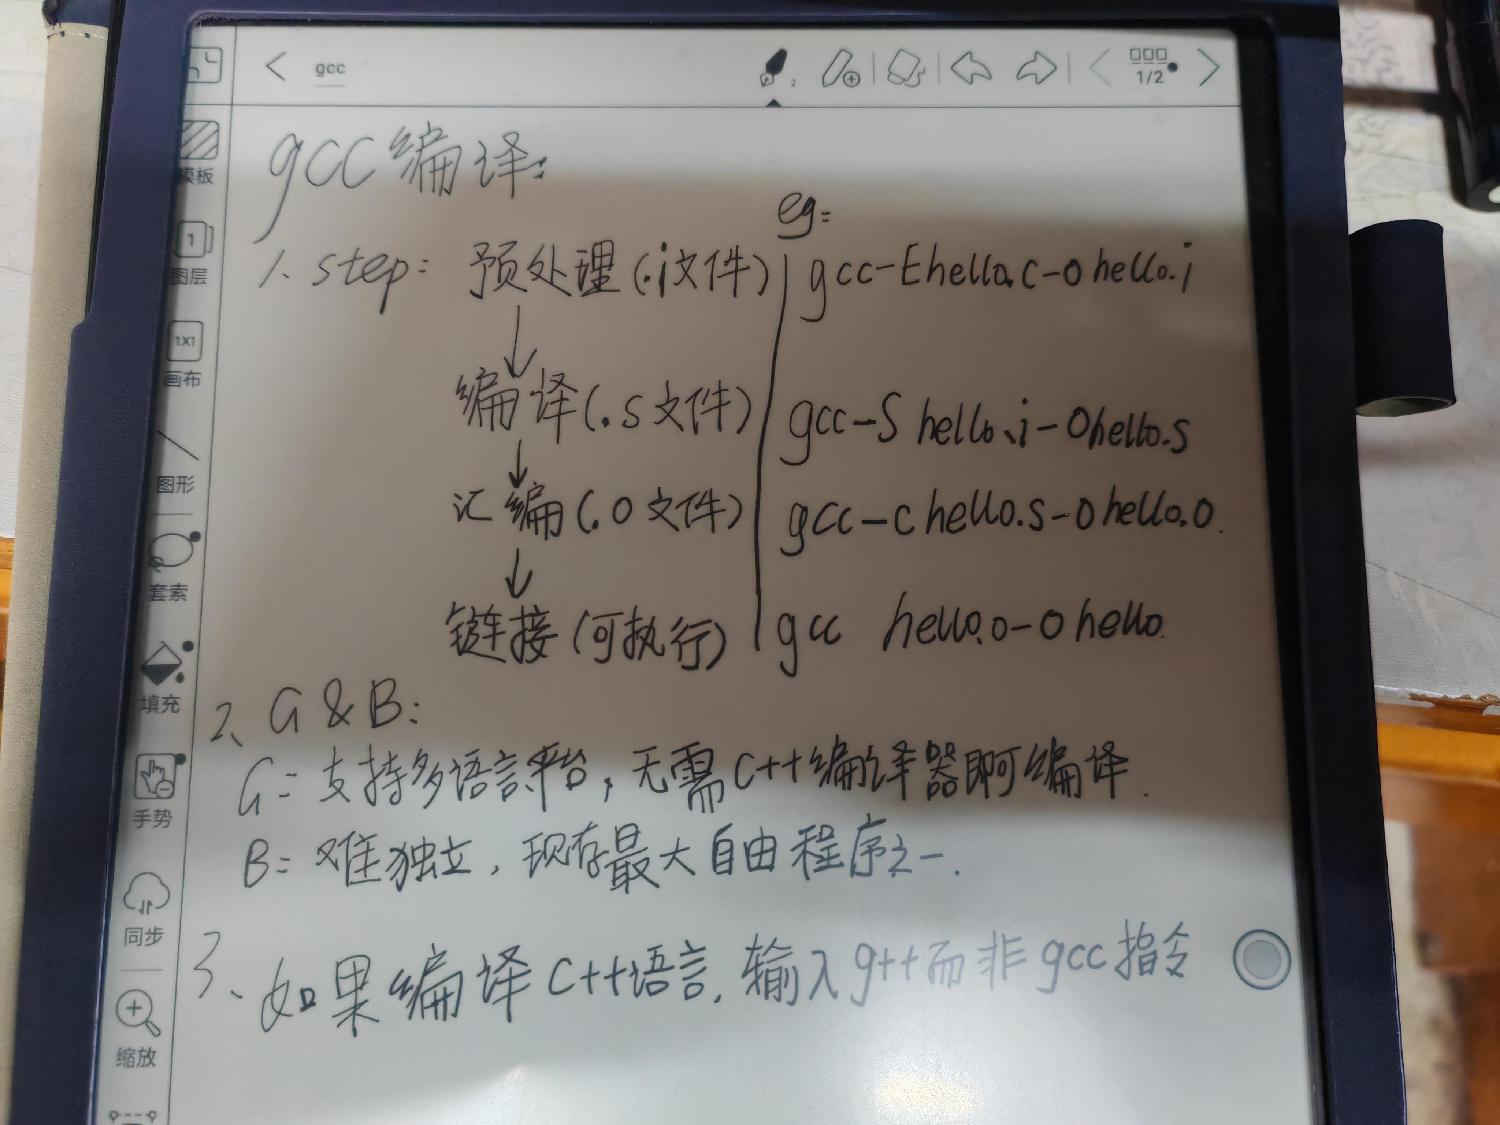 gcc
2
1/2
模板
1
图层
1X1
画布
图形
套索
填充
手势
同步
缩放
gcc编译:
eg:
1、step: 预处理(.i文件) gcc-Ehello.c-o hello.i
编译(.s文件) gcc-S hello.i-ohello.s
汇编(.o文件) gcc-c hello.s-o hello.o.
链接(可执行) gcc hello.o-o hello.
2、G&B:
G: 支持多语言平台,无需C++编译器即可编译.
B: 难独立,现存最大自由程序之一.
3、如果编译C++语言,输入g++而非gcc指令